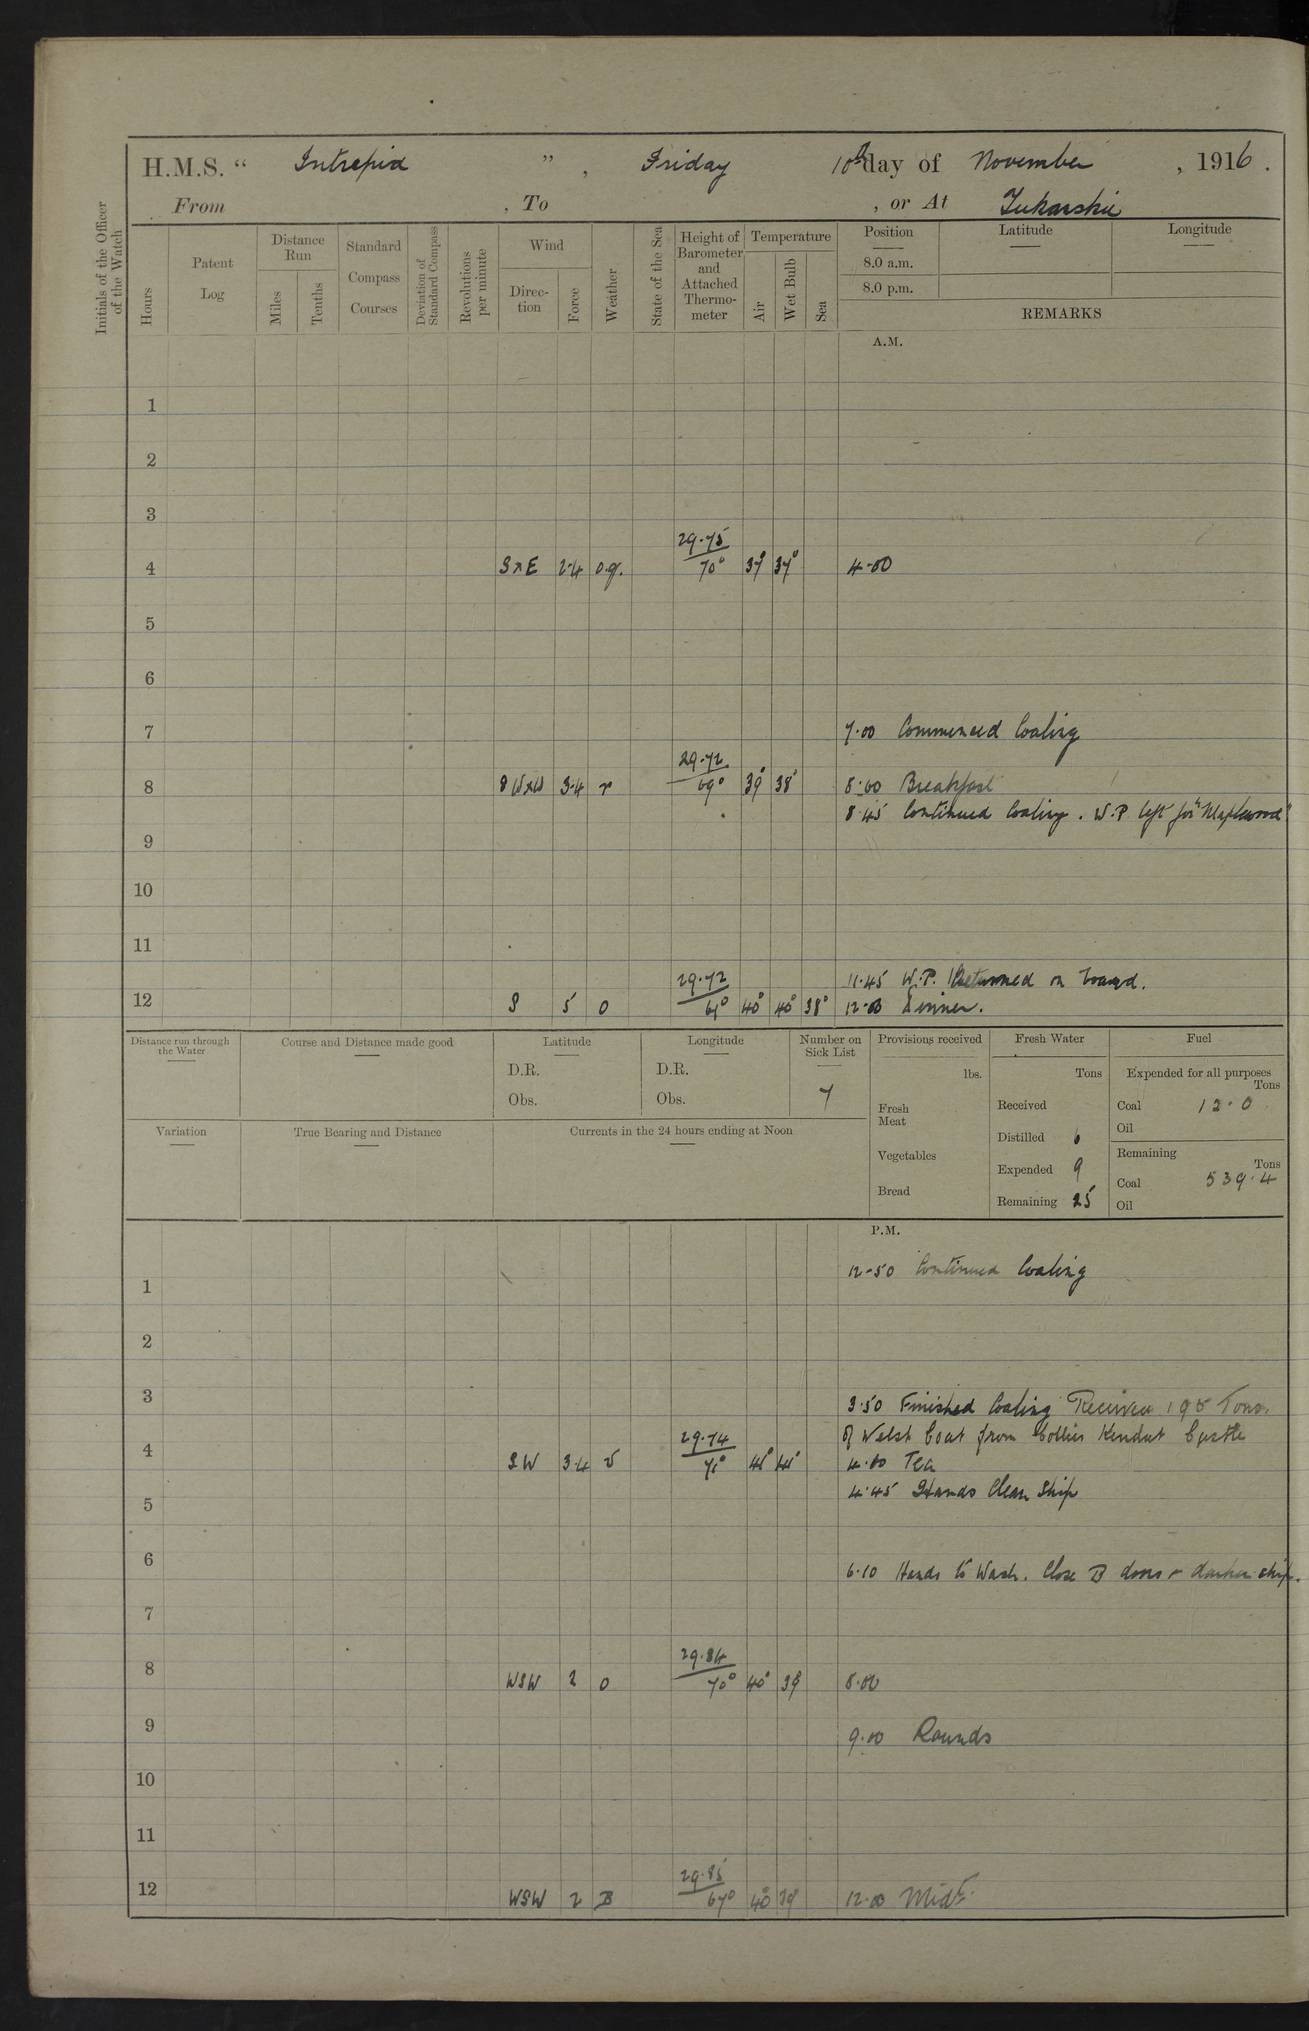 H.M.S. “ Intrepid ” , Friday 10th day of November , 1916 .
From , To , or At Yukanskie
Initials of the Officer of the Watch
Hours
Patent Log
Distance Run
Miles
Tenths
Standard Compass Courses
Deviation of Standard Compass
Revolutions per minute
Wind
Direction
Force
Weather
State of the Sea
Height of Barometer and Attached Thermometer
Temperature
Air
Wet Bulb
Sea
Position
8.0 a.m.
8.0 p.m.
Latitude
Longitude
REMARKS
A.M.
1
2
3
29.75
4 SxE 2.4 o.g. 70° 37° 37° 4.00
5
6
7 7.00 Commenced Coaling
29.72
8 SWxW 3.4 r 69° 39° 38° 8.00 Breakfast
8.45 Continued Coaling. W.P. left for "Maplewood"
9
10
11
29.72 11.45 W.P. Returned on board.
12 S 5 o 40° 40° 38° 12.00 Dinner.
Distance run through the Water
Course and Distance made good
Latitude
D.R.
Obs.
Longitude
D.R.
Obs.
Number on Sick List
7
Provisions received
lbs.
Fresh Meat
Vegetables
Bread
Fresh Water
Tons
Received
Distilled 6
Expended 9
Remaining 25
Fuel
Expended for all purposes
Tons
Coal 12.0
Oil
Remaining
Tons
Coal 539.4
Oil
Variation
True Bearing and Distance
Currents in the 24 hours ending at Noon
P.M.
12.50 Continued Coaling
1
2
3
3.50 Finished Coaling Received 195 Tons.
29.74 of Welsh Coal from Collier Kendal Castle
4 SW 3.4 71° 41° 41° 4.00 Tea
4.45 Hands Clean Ship
5
6 6.10 Hands to Wash. Close B doors & darken ship.
7
29.84
8 WSW 2 o 70° 40° 39° 8.00
9 9.00 Rounds
10
11
29.85
12 WSW 2 B 67° 40° 39° 12.00 Midt.